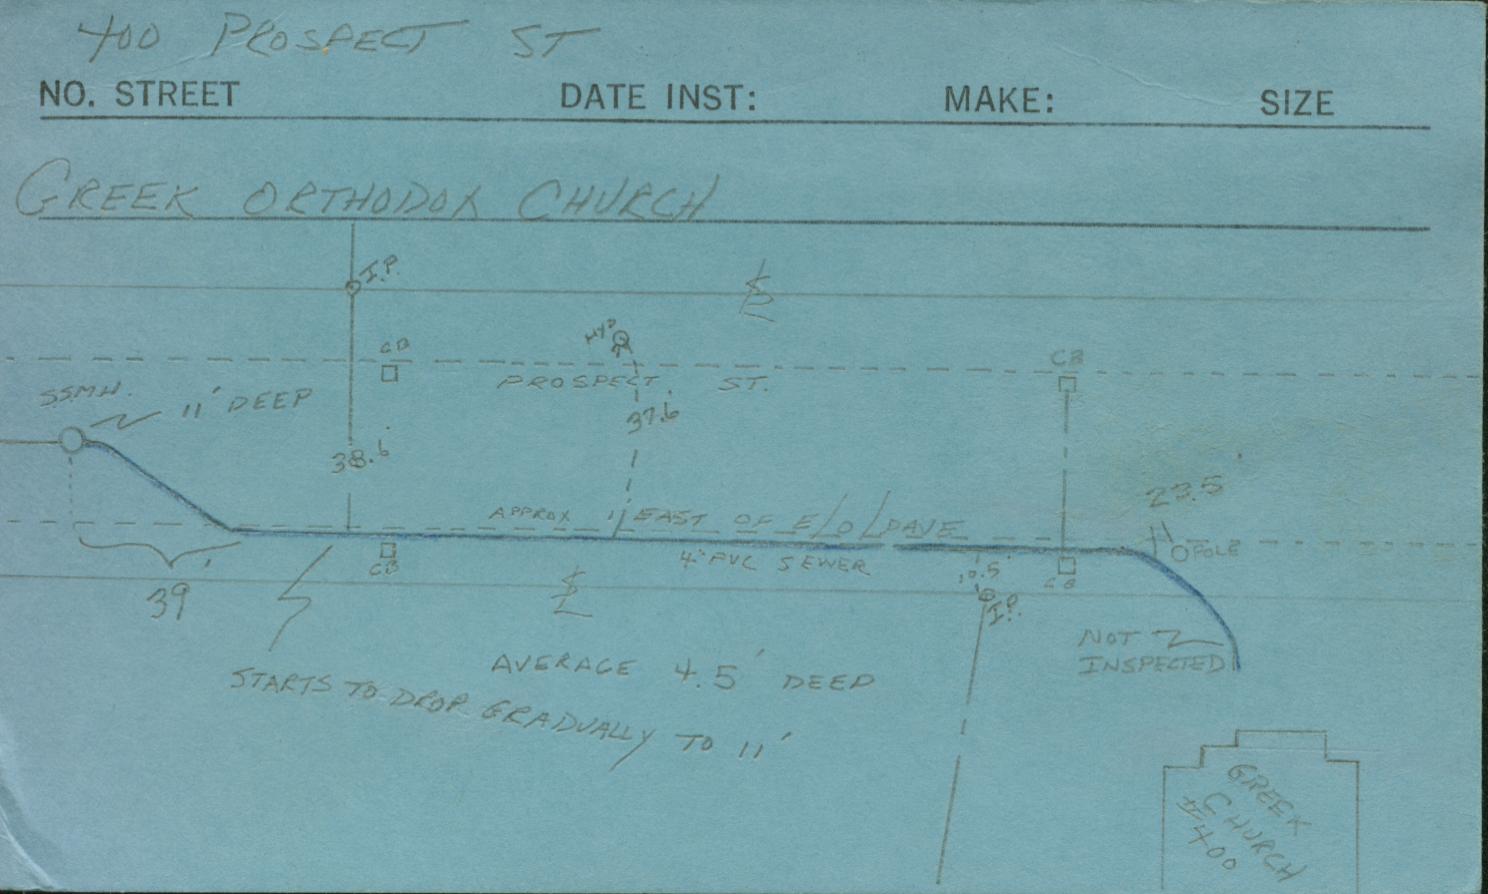 400 PROSPECT ST
NO. STREET DATE INST: MAKE: SIZE
GREEK ORTHODOX CHURCH
I.P.
HYD
CB
CB
PROSPECT ST.
S.S.M.H.
11' DEEP
37.6'
38.6'
23.5'
APPROX 1' EAST OF E/O/PAVE
POLE
4" PVC SEWER
10.5'
CB
CB
39'
I.P.
NOT
INSPECTED
AVERAGE 4.5' DEEP
STARTS TO DROP GRADUALLY TO 11'
GREEK
CHURCH
#400